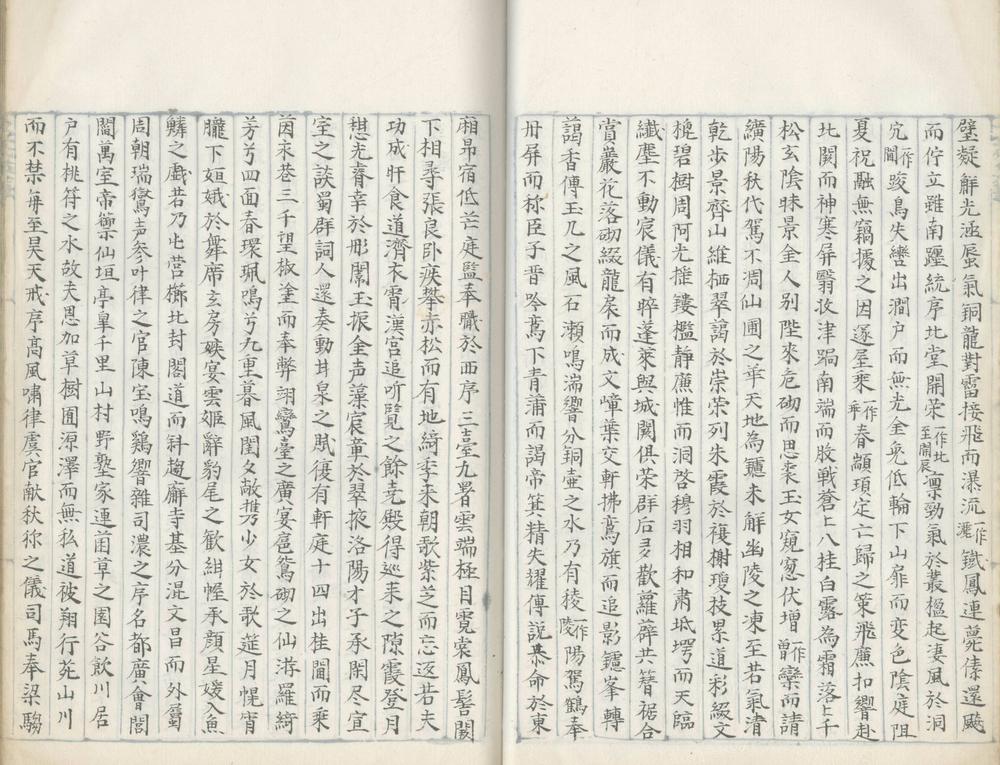 璧凝解光涵蜃氣銅龍對霤接飛而瀑流一作灑鐵鳳連甍傃還飈
而佇立雖南躔統序北堂開荣一作北至開辰凛勁氣於叢楹起凄風於洞
宂一作闔踆鳥失轡出澗户而無光金兔低輪下山扉而变色陰庭阻
夏祝融無竊據之因邃屋乘一作乖春顓頊定亡歸之策飛廉扣響赴
北闕而神寒屏翳收津蹋南端而股戦蒼上八桂白露為霜落上千
松玄陰昧景金人别陛來危砌而思裘玉女窺窓伏增一作曾欒而請
纊陽秋代駕不凋仙圃之華天地為鑪未解幽陵之凍至若氣清
乾步景齊山維栖翠謁於崇荣列朱霞於複榭瓊技累道彩綴文
槐碧樹周阿光摧鏤檻静廡惟而洞啓穆羽相和肅坻堮而天臨
纖塵不動宸儀有睟蓬萊與城闕俱荣群后多歡蘿薜共簪裾合
賞巖花落砌綴龍扆而成文嶂葉交軒拂鸞旗而追影鑪峯轉
謁香傳玉几之風石瀬鳴湍響分銅壷之水乃有稜一作陵陽駕鶴奉
丹屏而称臣子晋吟鸞下青蒲而謁帝箕精失耀傳說恭命於東
廂昴宿低芒庭監奉職於西序三臺九署雲端極目霓裳鳳髻闕
下相尋張良卧疾攀赤松而有地綺季来朝歌紫芝而忘返若夫
功成旰食道濟衣霄漢宫追听覧之餘尭殿得巡来之隙霞登月
憇光脊幸於彤闈玉振金声藻宸章於翠掖洛陽才子承閑尽宣
室之談蜀群詞人還奏動甘泉之賦復有軒庭十四出桂閫而乘
茵永巷三千望椒塗而奉弊翊鸞臺之廣宴扈篤砌之仙游羅綺
芳兮四面春環珮鳴兮九重暮風閨女敵携少女於歌莚月幌宵
朧下姮娥於舞席玄房娭宴雲姬辭豹尾之歓紺幄承顔星媛入魚
鱗之戲若乃屯营櫛比封閣道而斜趨廨寺基分混文昌而外屬
周朝瑞鸞声参叶律之官陳宝鳴鷄響雜司濃之序名都廣會閭
閻萬室帝禦仙垣亭臯千里山村野塾家連菌草之園谷飲川居
户有桃符之水故夫恩加草樹囿源澤而無私道被翔行苑山川
而不禁毎至昊天戒序高風嘯律虞官献秋祢之儀司馬奉梁騶